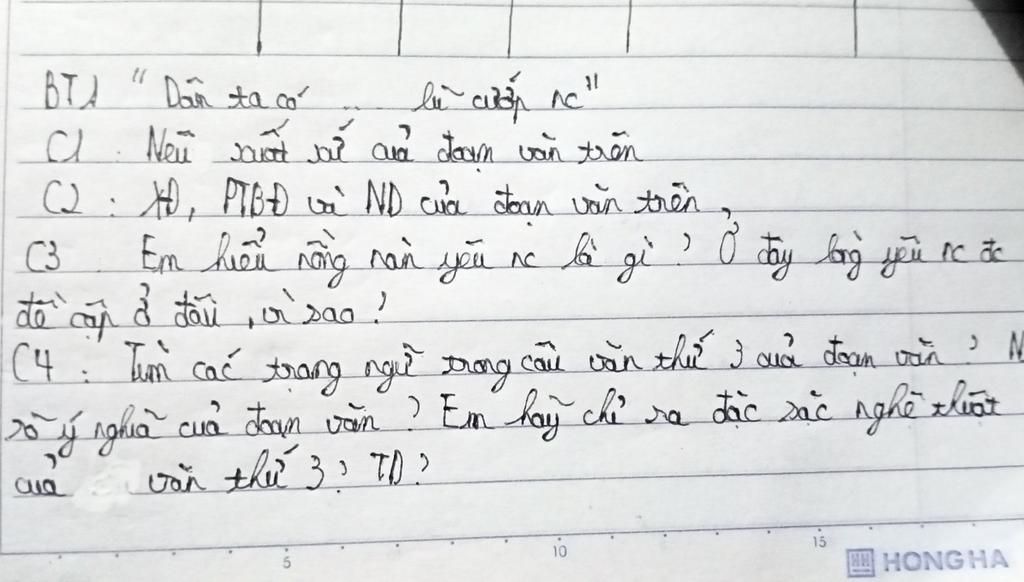 BT1 "Dân ta có ... lũ cướp nc"
C1 : Nêu xuất xứ của đoạn văn trên
C2 : XĐ, PTBĐ và ND của đoạn văn trên,
C3 Em hiểu nồng nàn yêu nc là gì ? Ở đây lòng yêu nc đc
đề cập ở đâu, vì sao ?
C4 : Tìm các trạng ngữ trong câu văn thứ 3 của đoạn văn ? N
rõ ý nghĩa của đoạn văn ? Em hãy chỉ ra đặc sắc nghệ thuật
của văn thứ 3 ? TD ?
5 10 15
HONG HA